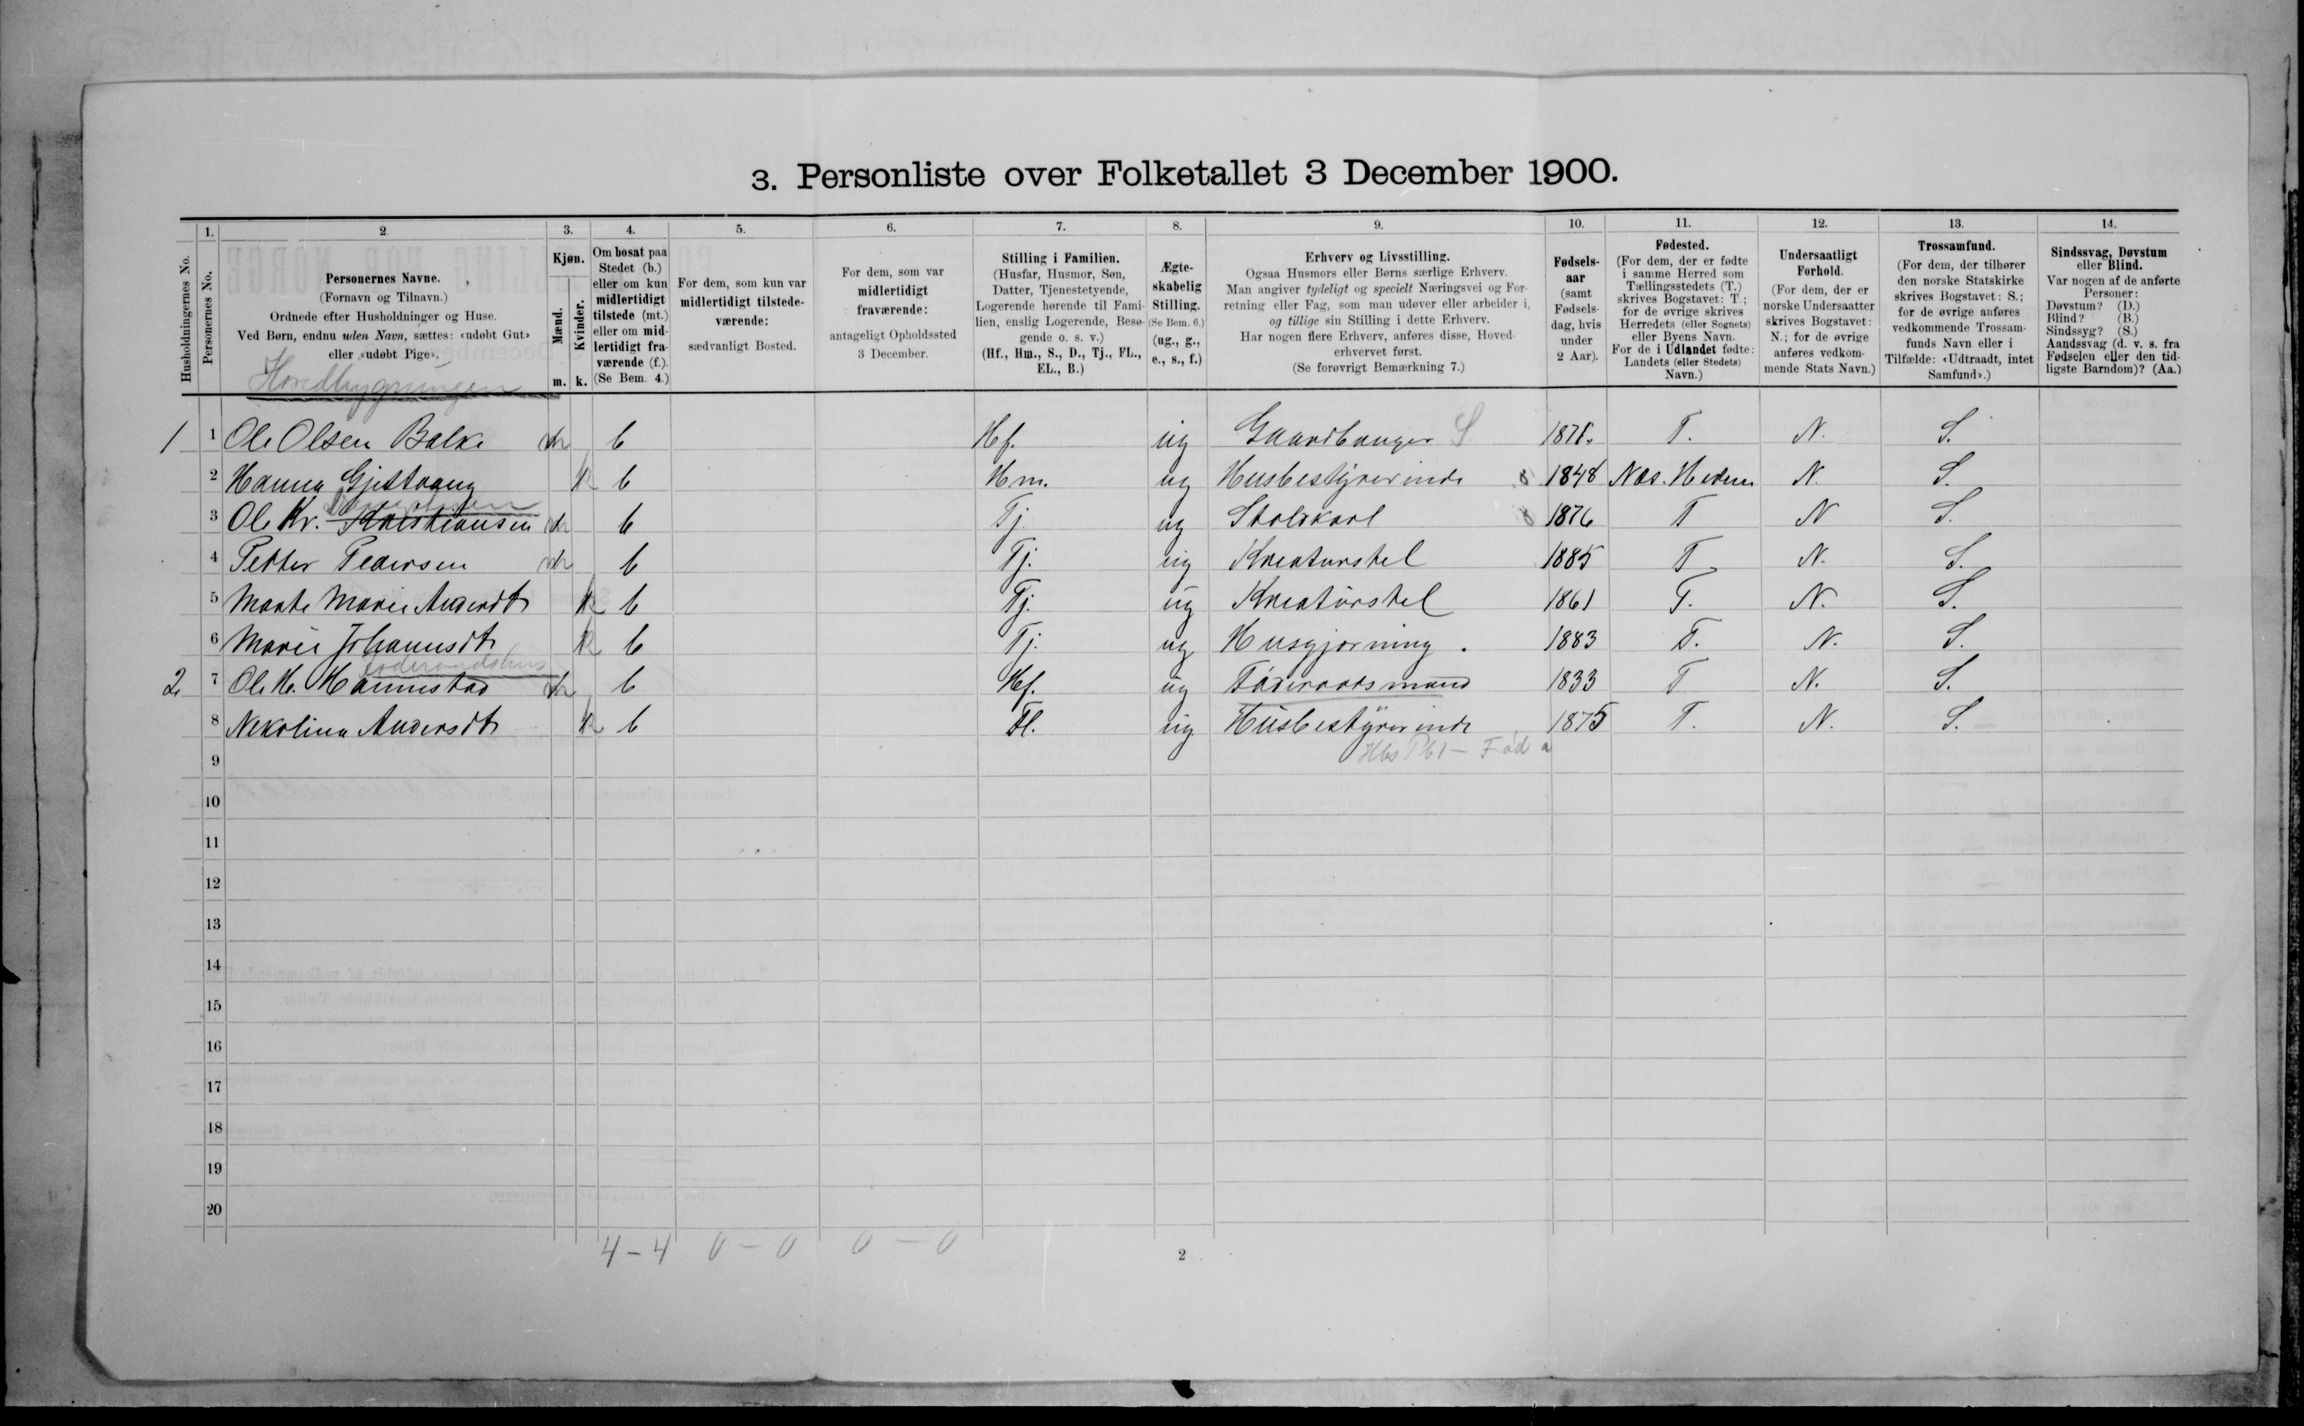 3. Personliste over Folketallet 3 December 1900.
1. 2. 3. 4. 5. 6. 7. 8. 9. 10. 11. 12. 13. 14.
Husholdningernes No.
Personernes No.
Personernes Navne.
(Fornavn og Tilnavn.)
Ordnede efter Husholdninger og Huse.
Ved Børn, endnu uden Navn, sættes: «udøbt Gut»
eller «udøbt Pige».
Kjøn.
Mænd.
Kvinder.
m. k.
Om bosat paa
Stedet (b.)
eller om kun
midlertidigt
tilstede (mt.)
eller om mid-
lertidigt fra-
værende (f.).
(Se Bem. 4.)
For dem, som kun var
midlertidigt tilstede-
værende:
sædvanligt Bosted.
For dem, som var
midlertidigt
fraværende:
antageligt Opholdssted
3 December.
Stilling i Familien.
(Husfar, Husmor, Søn,
Datter, Tjenestetyende,
Logerende hørende til Fami-
lien, enslig Logerende, Besø-
gende o. s. v.)
(Hf., Hm., S., D., Tj., FL.,
EL., B.)
Ægte-
skabelig
Stilling.
(Se Bem. 6.)
(ug., g.,
e., s., f.)
Erhverv og Livsstilling.
Ogsaa Husmors eller Børns særlige Erhverv.
Man angiver tydeligt og specielt Næringsvei og For-
retning eller Fag, som man udøver eller arbeider i,
og tillige sin Stilling i dette Erhverv.
Har nogen flere Erhverv, anføres disse, Hoved-
erhvervet først.
(Se forøvrigt Bemærkning 7.)
Fødsels-
aar
(samt
Fødsels-
dag, hvis
under
2 Aar).
Fødested.
(For dem, der er fødte
i samme Herred som
Tællingsstedets (T.)
skrives Bogstavet: T.;
for de øvrige skrives
Herredets (eller Sognets)
eller Byens Navn.
For de i Udlandet fødte:
Landets (eller Stedets)
Navn.)
Undersaatligt
Forhold.
(For dem, der er
norske Undersaatter
skrives Bogstavet:
N.; for de øvrige
anføres vedkom-
mende Stats Navn.)
Trossamfund.
(For dem, der tilhører
den norske Statskirke
skrives Bogstavet: S.;
for de øvrige anføres
vedkommende Trossam-
funds Navn eller i
Tilfælde: «Udtraadt, intet
Samfund».)
Sindssvag, Døvstum
eller Blind.
Var nogen af de anførte
Personer:
Døvstum? (D.)
Blind? (B.)
Sindssyg? (S.)
Aandssvag (d. v. s. fra
Fødselen eller den tid-
ligste Barndom)? (Aa.)
Hovedbygningen
1 1 Ole Olsen Balke m b Hf. ug Gaardbruger S 1871. T. N. S.
2 Hanna Gjestvang k b Hm. ug Husbestyrerinde 8 1848 Næs. Hedem N. S.
3 Ole Kr. Kristiansen m b Tj ug Staldkarl 8 1876 T N S.
4 Petter Pedersen m b Tj. ug Kreaturstel 1885 T N. S.
5 Marte Marie Andersdt k b Tj. ug Kreaturstel 1861 T. N. S.
6 Marie Johannesdt k b Tj. ug Husgjørning. 1883 T. N. S.
Føderaadshus
2 7 Ole H. Hannestad m b Hf. ug Føderaadsmand 1833 T N. S.
8 Nekolina Andersdt k b Fl. ug Husbestyrerinde 1875 T. N. S.
9
10
11
12
13
14
15
16
17
18
19
20
4-4 0-0 0-0
2